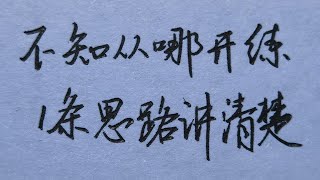 不知从哪开练
1条思路讲清楚